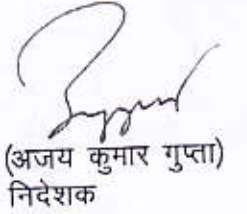 (अजय कुमार गुप्ता)
निदेशक